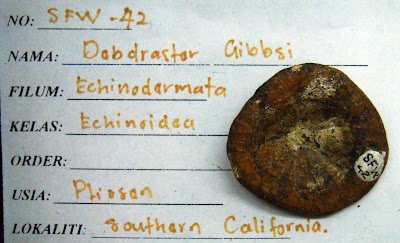 NO: SFW - 42
NAMA: Dobdraster Gibbsi
FILUM: Echinodermata
KELAS: Echinoidea
ORDER:
USIA: Pliosen
LOKALITI: Southern California.
SFW
42